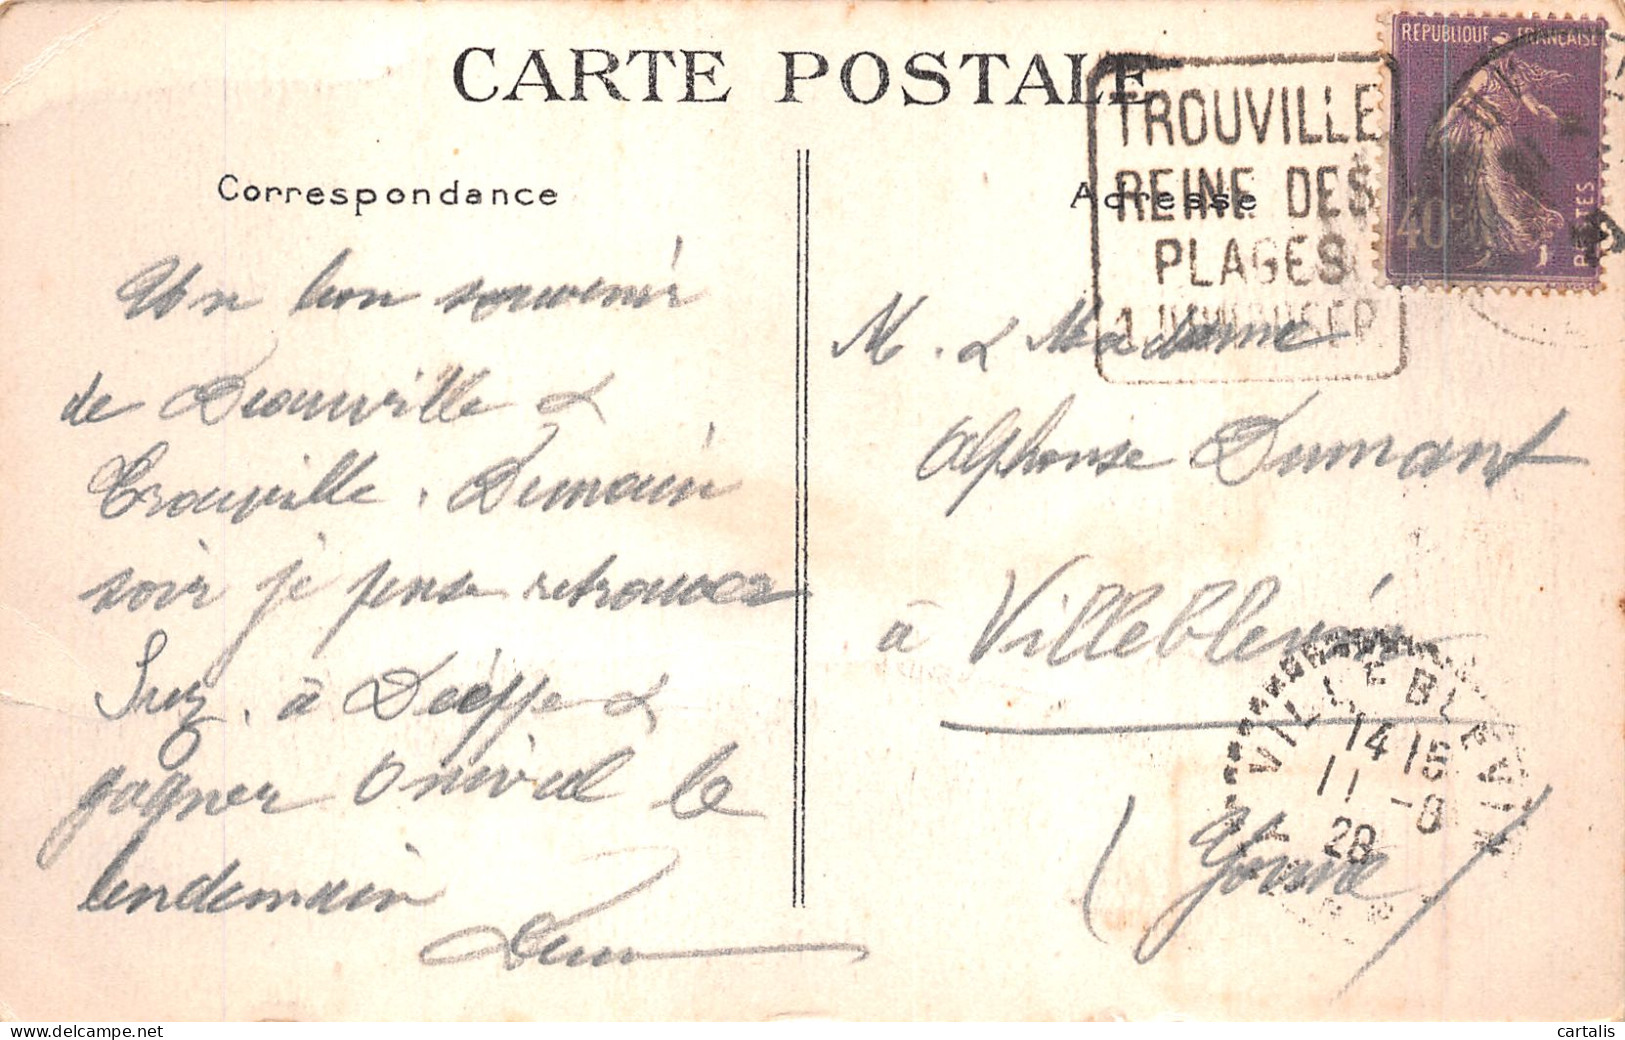 CARTE POSTALE
Correspondance
Adresse
TROUVILLE
REINE DES
PLAGES
REPUBLIQUE FRANÇAISE
40c
POSTES
Un bon souvenir
de Deauville &
Trouville. Demain
soir je pense retrouver
Suz. à Dieppe &
gagner Onival le
lendemain
M. & Madame
Alphonse Dumant
à Villeblevin
(Yonne)
VILLEBLEVIN
14 15
11 -8
28
cartalis